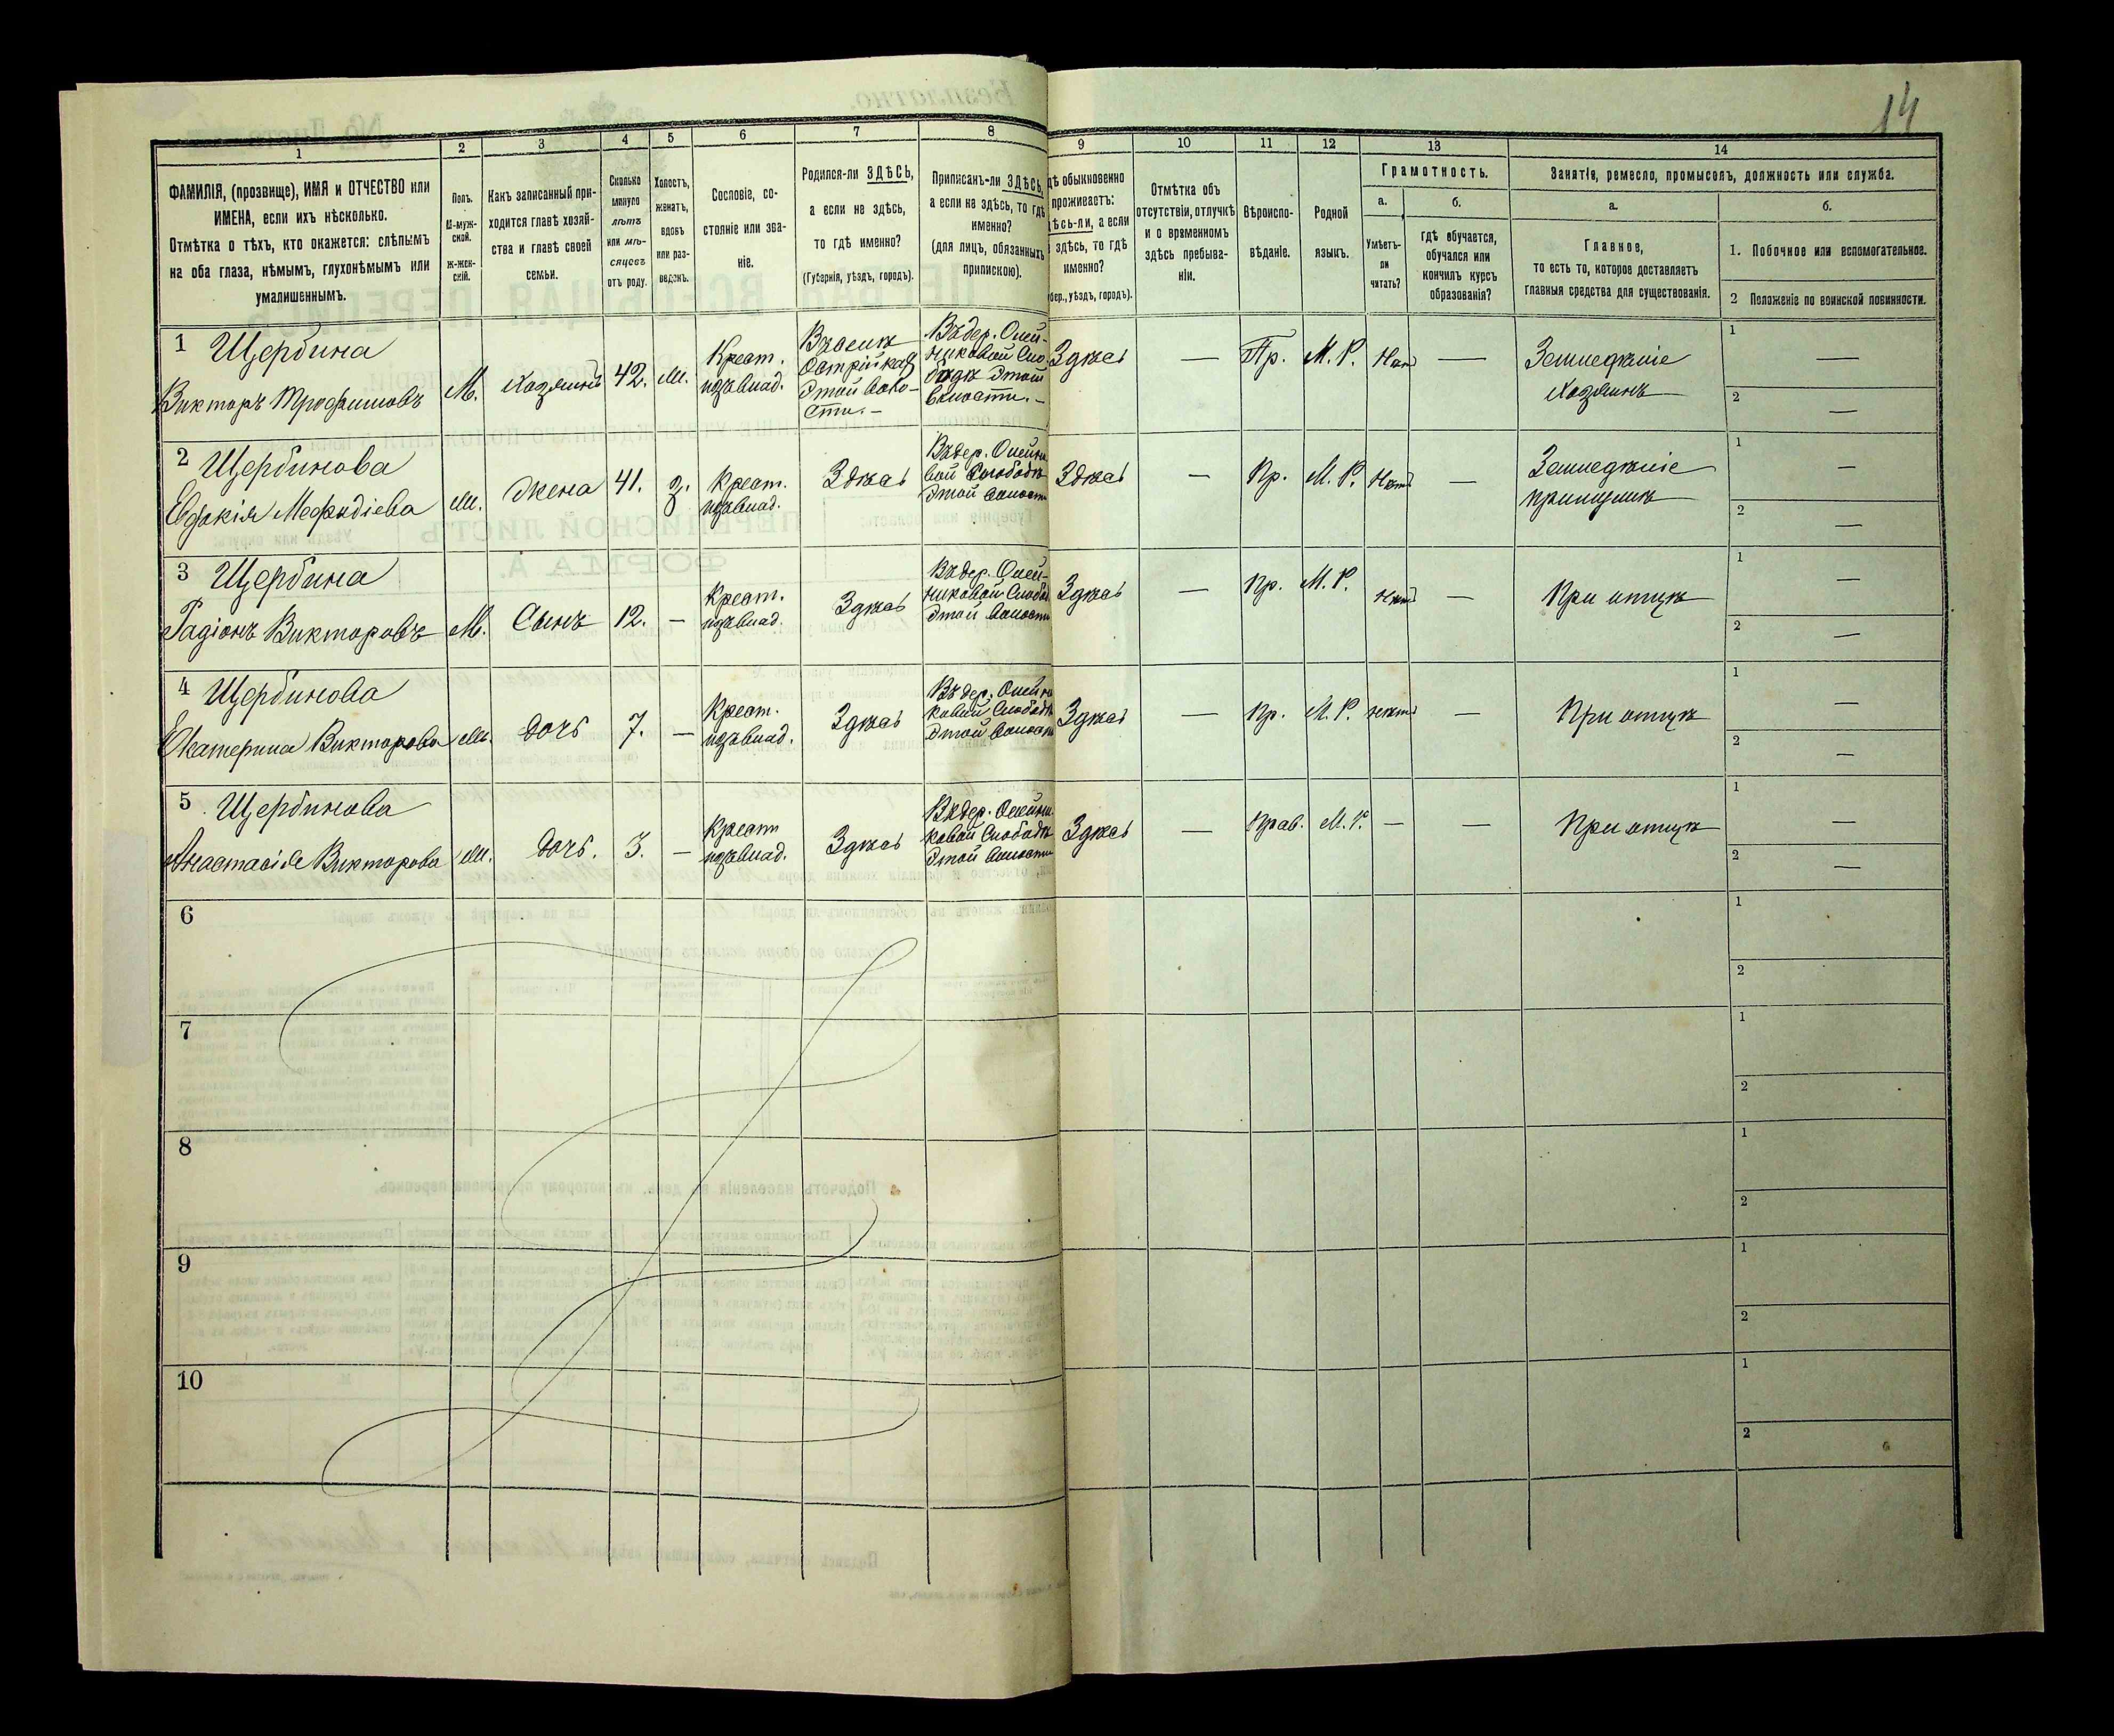 14
1 2 3 4 5 6 7 8 9 10 11 12 13 14
ФАМИЛІЯ, (прозвище), ИМЯ и ОТЧЕСТВО или
ИМЕНА, если ихъ нѣсколько.
Отмѣтка о тѣхъ, кто окажется: слѣпымъ
на оба глаза, нѣмымъ, глухонѣмымъ или
умалишеннымъ.
Полъ.
М-муж-
ской.
Ж-жен-
скій.
Какъ записанный при-
ходится главѣ хозяй-
ства и главѣ своей
семьи.
Сколько
минуло
лѣтъ
или мѣ-
сяцевъ
отъ роду.
Холостъ,
женатъ,
вдовъ
или раз-
веденъ.
Сословіе, со-
стояніе или зва-
ніе.
Родился-ли ЗДѢСЬ,
а если не здѣсь,
то гдѣ именно?
(Губернія, уѣздъ, городъ).
Приписанъ-ли ЗДѢСЬ,
а если не здѣсь, то гдѣ
именно?
(для лицъ, обязанныхъ
припискою).
дѣ обыкновенно
проживаетъ:
ѣсь-ли, а если
здѣсь, то гдѣ
именно?
бер., уѣздъ, городъ).
Отмѣтка объ
отсутствіи, отлучкѣ
и о временномъ
здѣсь пребыва-
ніи.
Вѣроиспо-
вѣданіе.
Родной
языкъ.
Грамотность.
а.
Умѣетъ-
ли
читать?
б.
гдѣ обучается,
обучался или
кончилъ курсъ
образованія?
Занятіе, ремесло, промыселъ, должность или служба.
а.
Главное,
то есть то, которое доставляетъ
главныя средства для существованія.
б.
1. Побочное или вспомогательное.
2 Положеніе по воинской повинности.
1 Щербина
Викторъ Трофимовъ
М.
Хозяинъ
42.
ж.
Крест.
изъ влад.
Этой воло-
сти. –
Въ дер. Олей-
никовой Сло-
бодѣ этой
волости. –
Здѣсь
—
Пр.
М. Р.
Нѣтъ
—
Земледѣліе
Хозяинъ
1 —
2 —
2 Щербинова
Евдокія Мефодіева
ж.
Жена
41.
з.
Крест.
изъ влад.
Здѣсь
Въ дер. Олейни
вой Слободѣ
этой волости
Здѣсь
—
Пр.
М. Р.
Нѣтъ
—
Земледѣліе
1 —
2 —
3 Щербина
Радіонъ Викторовъ
М.
Сынъ
12.
—
Крест.
изъ влад.
Здѣсь
Въ дер. Олей-
никовой Слобод
этой волости
Здѣсь
—
Пр.
М. Р.
Нѣтъ
—
При отцѣ
1 —
2 —
4 Щербинова
Екатерина Викторова
ж.
дочь
7.
—
Крест.
изъ влад.
Здѣсь
Въ дер. Олейни
ковой Слободѣ
этой волости
Здѣсь
—
Пр.
М. Р.
нѣтъ
—
При отцѣ
1 —
2 —
5 Щербинова
Анастасія Викторова
ж.
дочь.
3.
—
Крест
изъ влад.
Здѣсь
Въ дер. Олейни
ковой Слободѣ
этой волости
Здѣсь
—
Прав.
М. Р.
—
—
При отцѣ
1 —
2 —
6
1
2
7
1
2
8
1
2
9
1
2
10
1
2